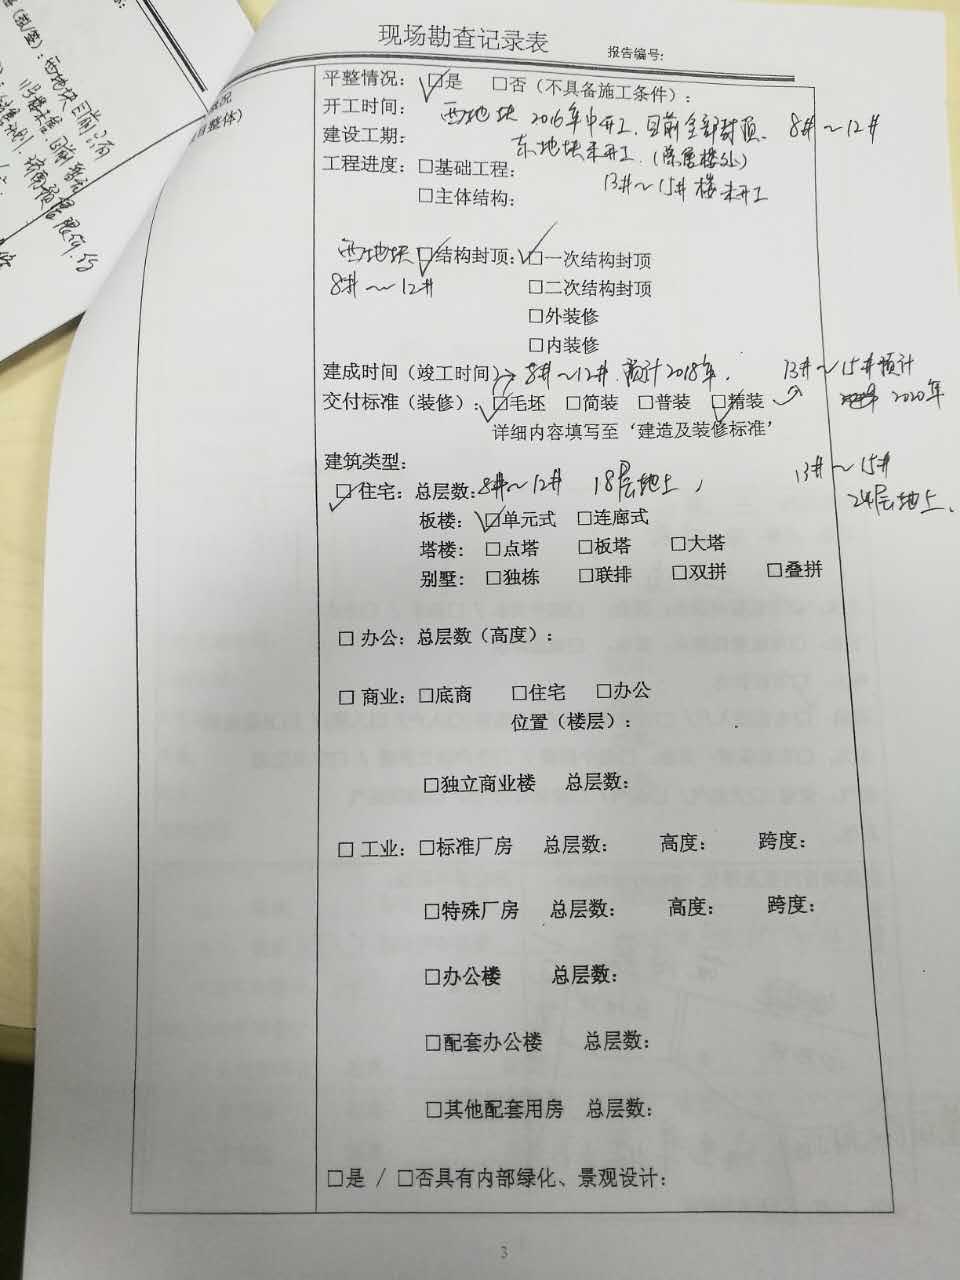 现场勘查记录表
报告编号:
平整情况: ☑是 □否(不具备施工条件):
开工时间: 西地块 2016年中开工,目前全部封顶. 8#~12#
建设工期: 东地块未开工.
13#~15#楼未开工
工程进度: □基础工程:
□主体结构:
西地块 ☑结构封顶: ☑一次结构封顶
8#~12#
□二次结构封顶
□外装修
□内装修
建成时间(竣工时间): 8#~12#. 预计2018年. 13#~15#预计
2020年
交付标准(装修): ☑毛坯 □简装 □普装 ☑精装
详细内容填写至‘建造及装修标准’
建筑类型:
☑住宅: 总层数: 8#~12# 18层地上, 13#~15#
24层地上.
板楼: ☑单元式 □连廊式
塔楼: □点塔 □板塔 □大塔
别墅: □独栋 □联排 □双拼 □叠拼
□办公: 总层数(高度):
□商业: □底商 □住宅 □办公
位置(楼层):
□独立商业楼 总层数:
□工业: □标准厂房 总层数: 高度: 跨度:
□特殊厂房 总层数: 高度: 跨度:
□办公楼 总层数:
□配套办公楼 总层数:
□其他配套用房 总层数:
□是 / □否具有内部绿化、景观设计:
3